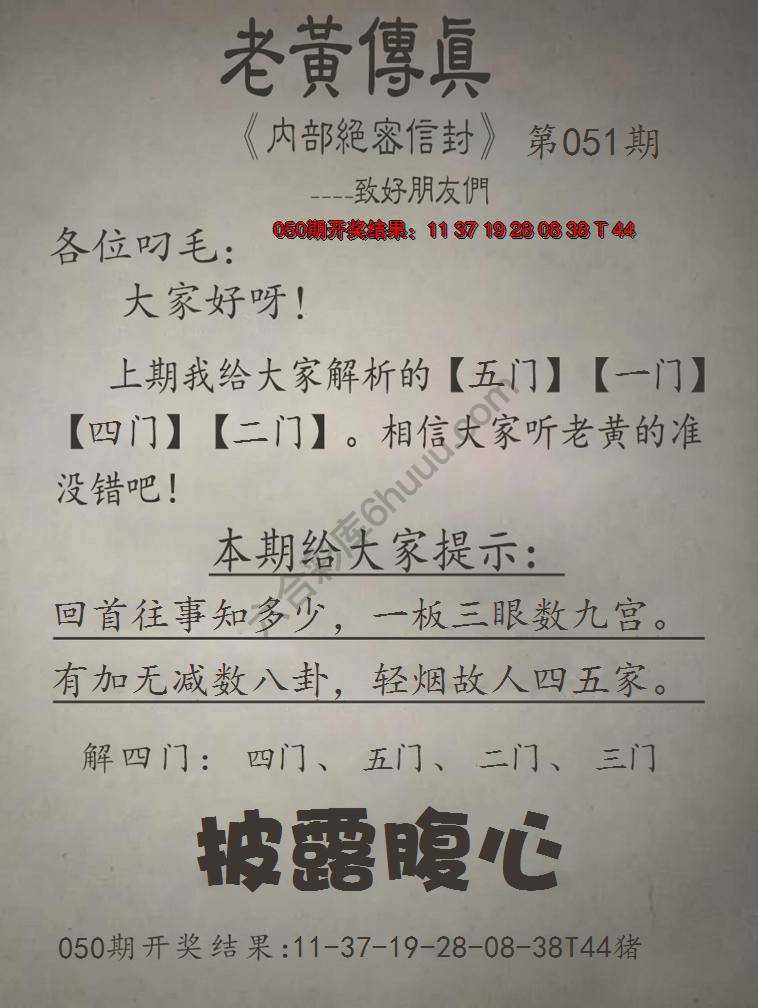 老黃傳眞
《内部絕密信封》 第051期
----致好朋友們
050期开奖结果：11 37 19 28 08 38 T 44
各位叼毛：
大家好呀！
上期我给大家解析的【五门】【一门】
【四门】【二门】。相信大家听老黄的准
没错吧！
本期给大家提示：
回首往事知多少，一板三眼数九宫。
有加无减数八卦，轻烟故人四五家。
解四门： 四门、 五门、 二门、 三门
披露腹心
050期开奖结果:11-37-19-28-08-38T44猪
六合彩库6huuu.com